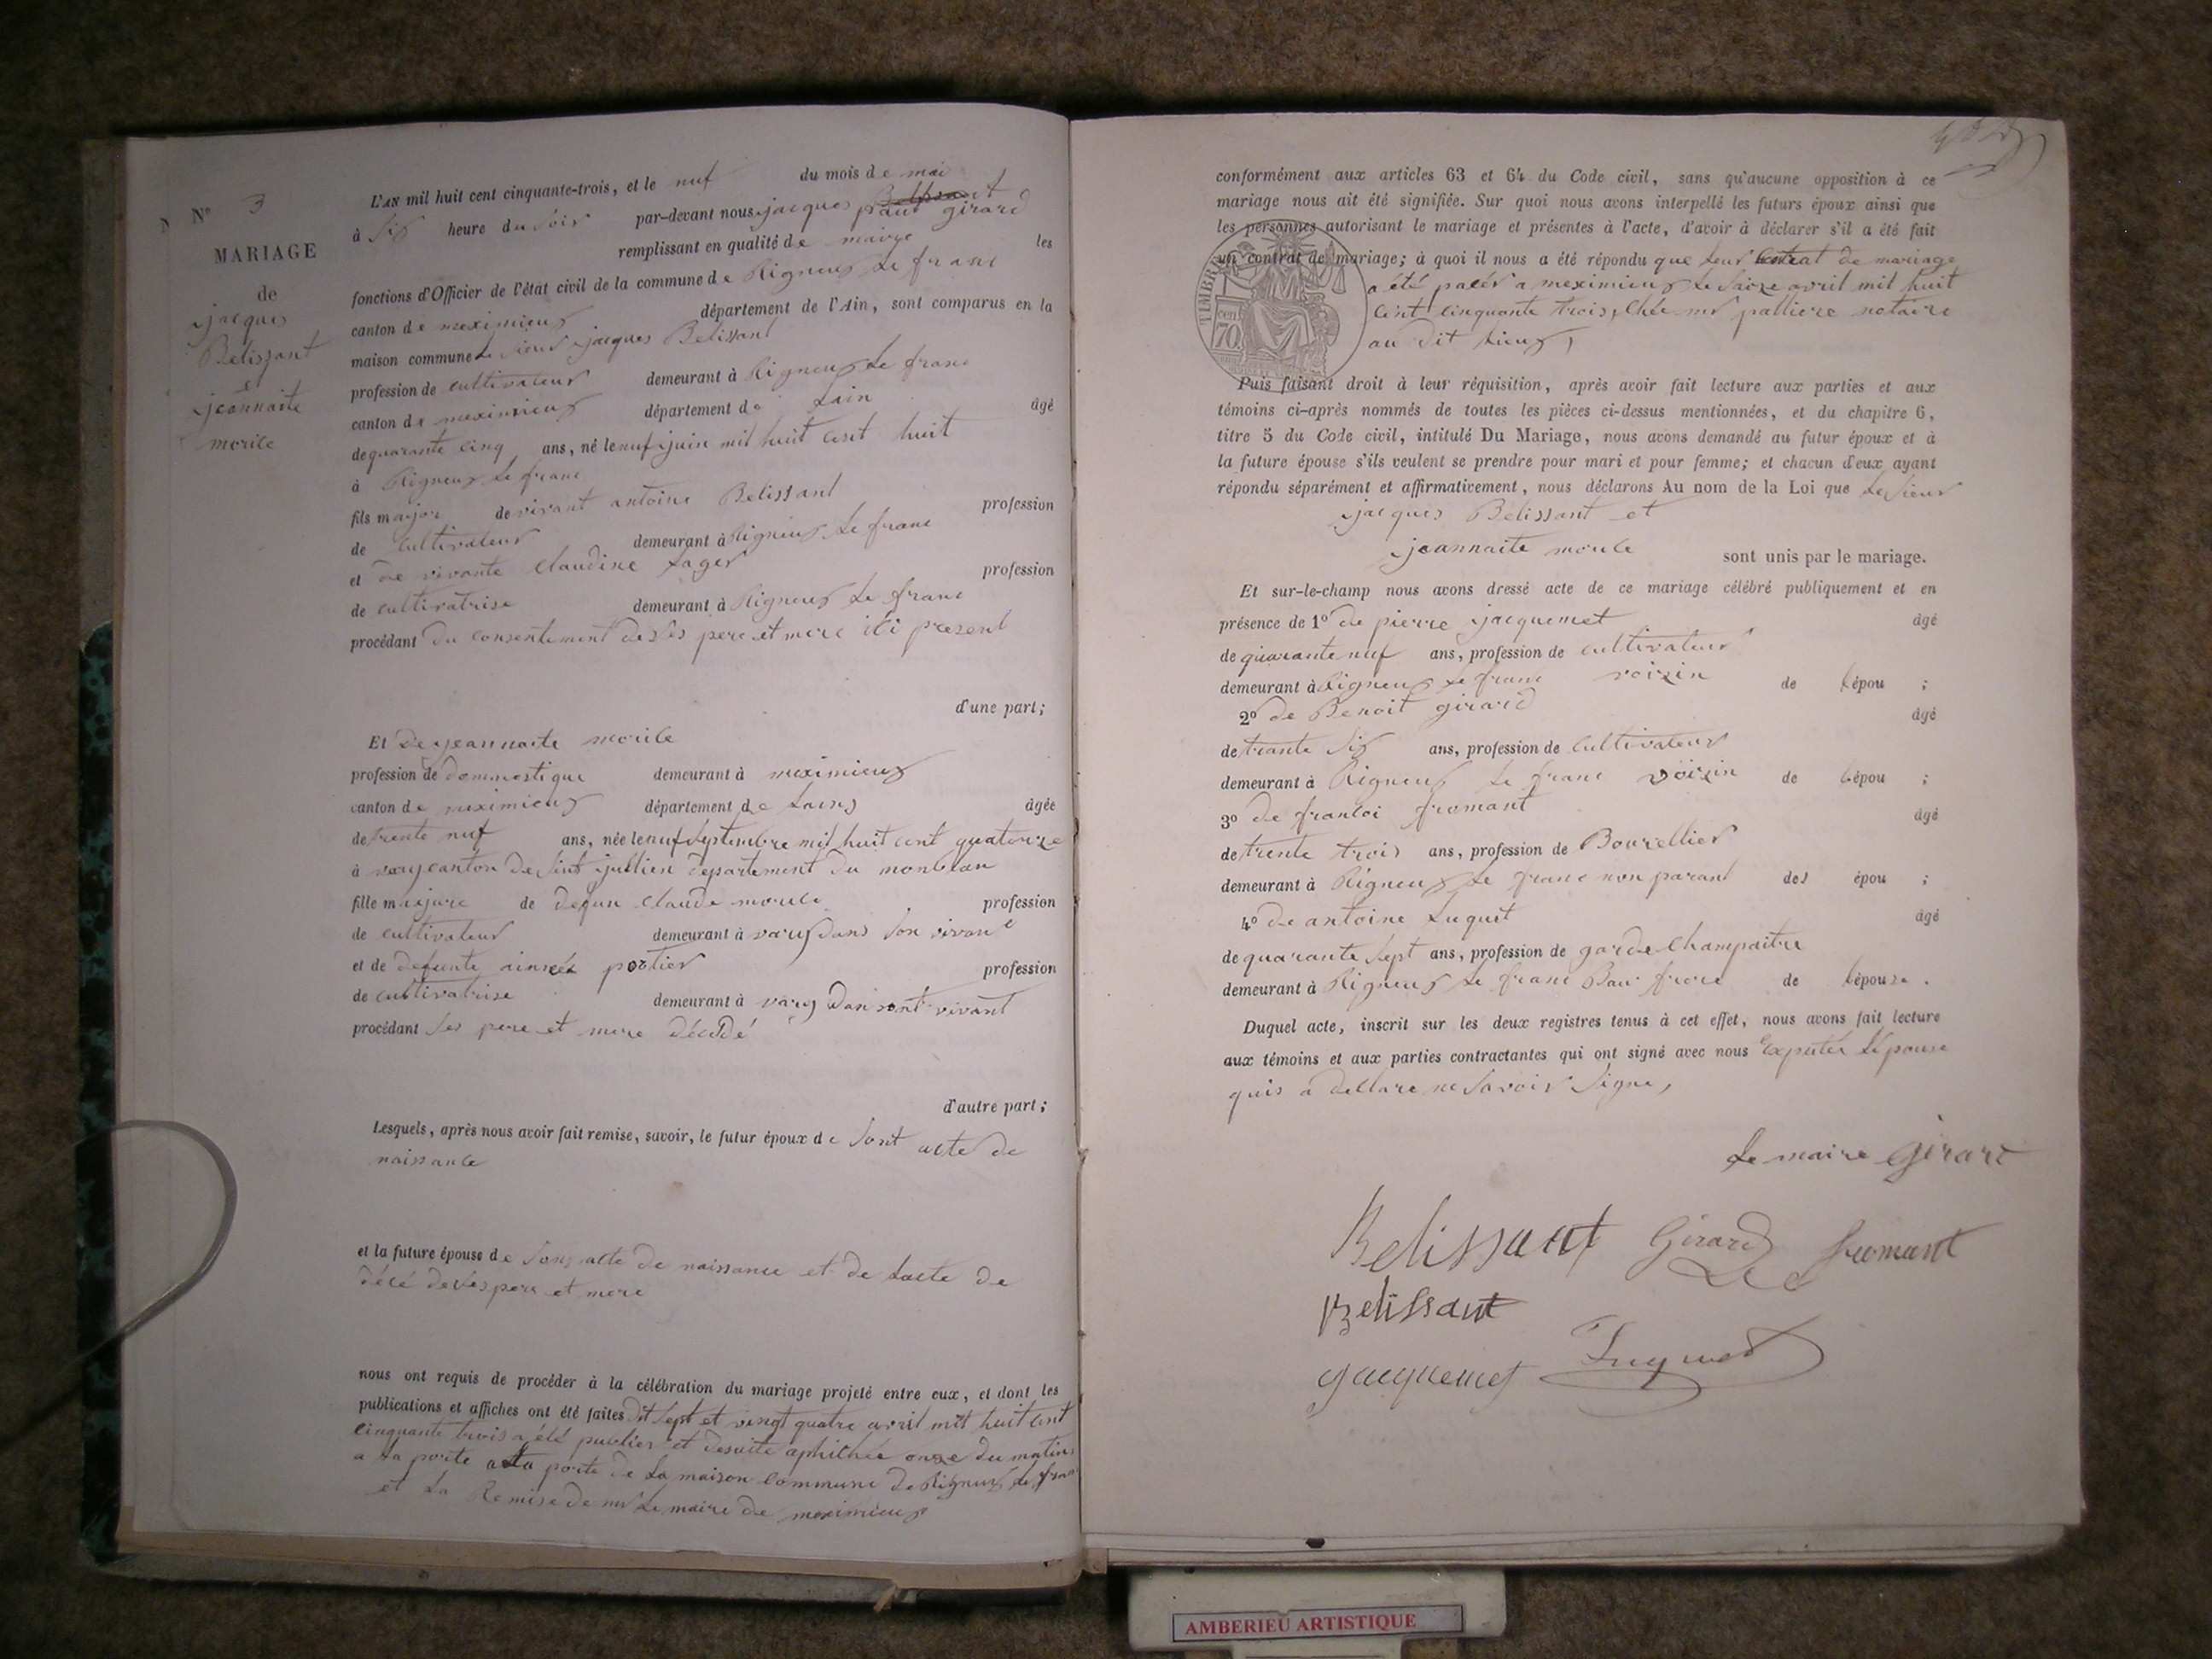 N° 3
MARIAGE
de
jacques
Belissant
et
jeannaite
L'AN mil huit cent cinquante-trois, et le nuf du mois de mai
à six heure du soir par-devant nous jacques girard
remplissant en qualité de mairye les
fonctions d'Officier de l'état civil de la commune de Rigneux Le franc
canton de meximieux département de l'Ain, sont comparus en la
maison commune Le sieur jacques Belissant
profession de cultivateur demeurant à Rigneux Le franc
canton de meximieux département de Lain âgé
de quarante cinq ans, né le nuf juin mil huit cent huit
à Rigneux Le franc
fils major de vivant antoine Belissant profession
de cultivateur demeurant à Rigneux Le franc
et de vivante Claudine Lager profession
de cultivatrise demeurant à Rigneux Le franc
procédant du consentement de ses pere et mere ici present
d'une part;
Et de jeannaite
profession de dommestique demeurant à meximieux
canton de meximieux département de âgée
de trente nuf ans, née le nuf septembre mil huit cent quatorze
à canton de sint jullien departement du monblan
fille majure de defun Claude profession
de cultivateur demeurant à dans son vivant
et de defunte portier profession
de cultivatrise demeurant à vivant
procédant ses pere et mere décédé
d'autre part;
Lesquels, après nous avoir fait remise, savoir, le futur époux de sont acte de
naissance
et la future épouse de acte de naissance et de Lacte de
pere et mere
nous ont requis de procéder à la célébration du mariage projeté entre eux, et dont les
publications et affiches ont été faites dit sept et vingt quatre avril mil huit cent
cinquante trois a été publier et desuite aphichée onze du matin
a La porte a La porte de La maison commune de Rigneux Le franc
et La Remise de mr Le maire de meximieux
conformément aux articles 63 et 64 du Code civil, sans qu'aucune opposition à ce
mariage nous ait été signifiée. Sur quoi nous avons interpellé les futurs époux ainsi que
les personnes autorisant le mariage et présentes à l'acte, d'avoir à déclarer s'il a été fait
un contrat de mariage; à quoi il nous a été répondu que Leur contrat de mariage
a été a meximieux Le avril mil huit
cent cinquante trois, mr palliere notaire
au dit Lieux,
TIMBRE
cen
70
Puis faisant droit à leur réquisition, après avoir fait lecture aux parties et aux
témoins ci-après nommés de toutes les pièces ci-dessus mentionnées, et du chapitre 6,
titre 5 du Code civil, intitulé Du Mariage, nous avons demandé au futur époux et à
la future épouse s'ils veulent se prendre pour mari et pour femme; et chacun d'eux ayant
répondu séparément et affirmativement, nous déclarons Au nom de la Loi que Le sieur
jacques Belissant et
jeannaite sont unis par le mariage.
Et sur-le-champ nous avons dressé acte de ce mariage célébré publiquement et en
présence de 1° de pierre jacquemet âgé
de quarante nuf ans, profession de cultivateur
demeurant à Rigneux Le franc voizin de Lépou ;
2° de Benoit girard âgé
de trante six ans, profession de cultivateur
demeurant à Rigneux Le franc voizin de Lépou ;
3° de francoi fromant âgé
de trente trois ans, profession de Bourellier
demeurant à Rigneux Le franc non parant des épou ;
4° de antoine Luquet âgé
de quarante sept ans, profession de garde Champaitre
demeurant à Rigneux Le franc Bau frere de Lépouse.
Duquel acte, inscrit sur les deux registres tenus à cet effet, nous avons fait lecture
aux témoins et aux parties contractantes qui ont signé avec nous Lépouse
quis a dellare ne savoir signe,
Le maire Girard
Belissant Girard fromant
Belissant
jacquemet Luquet
AMBERIEU ARTISTIQUE